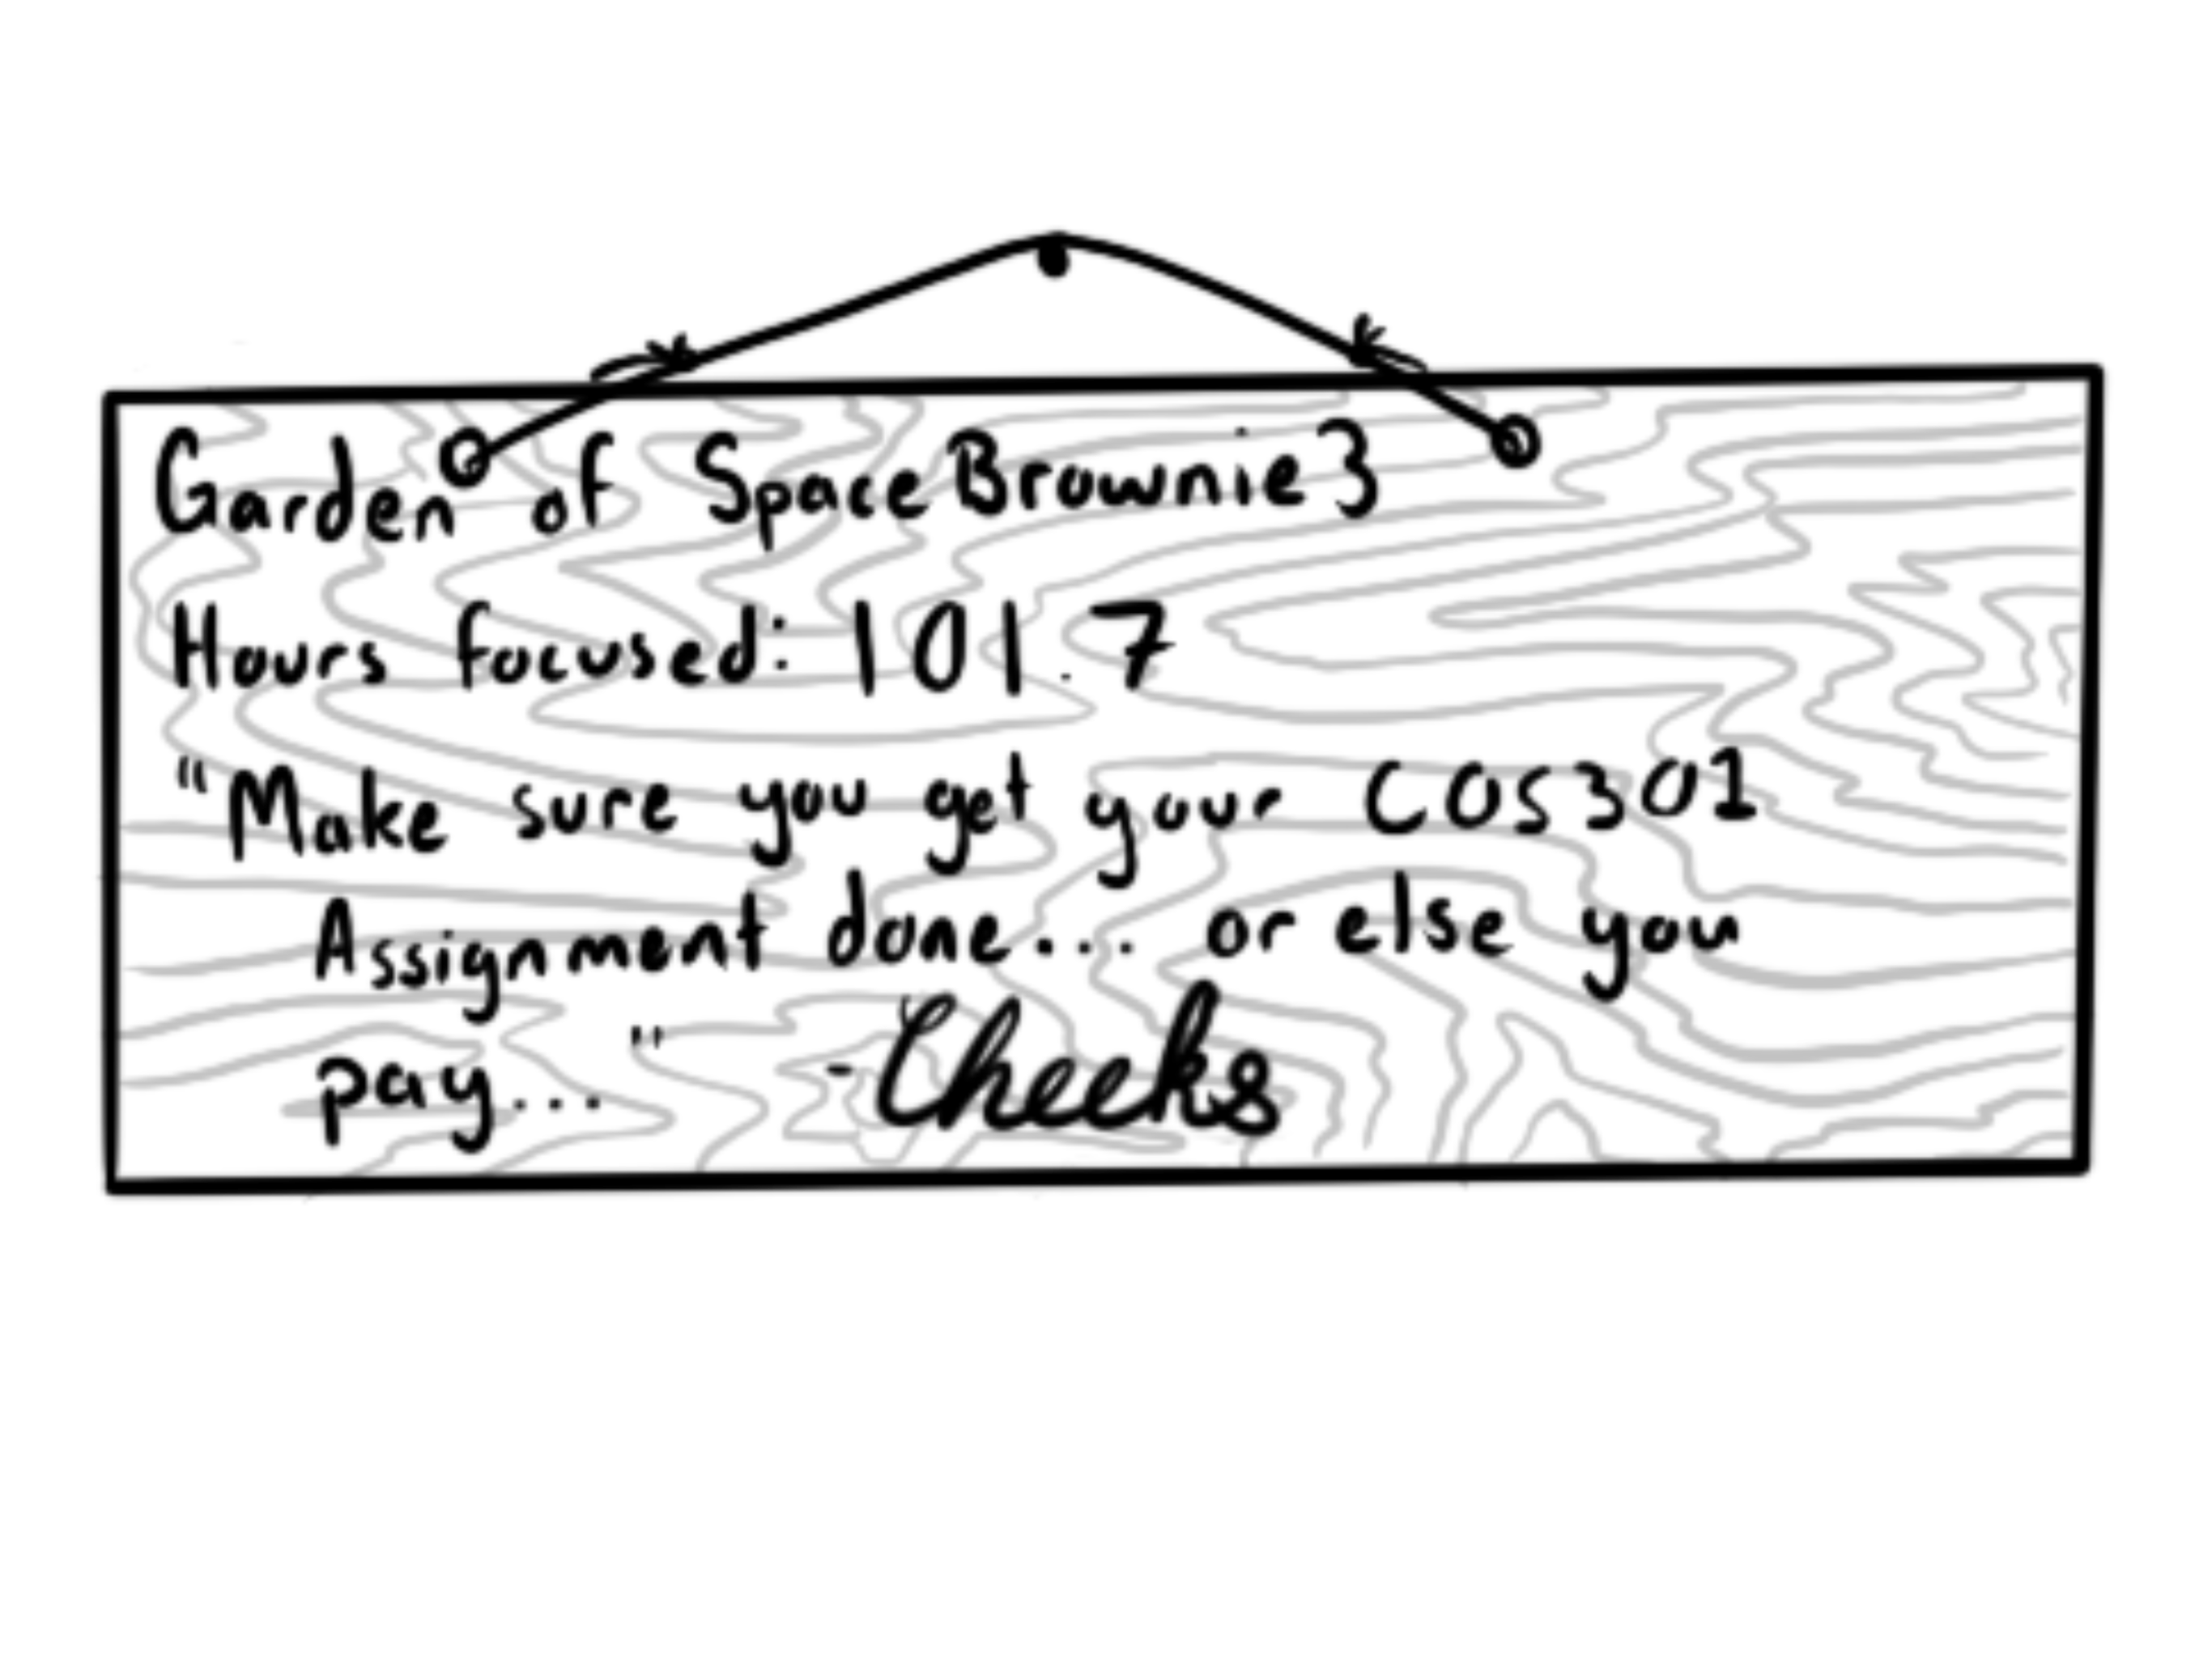 Garden of SpaceBrownie3
Hours focused: 101.7
"Make sure you get your COS301
Assignment done... or else you
pay..." -Cheeks